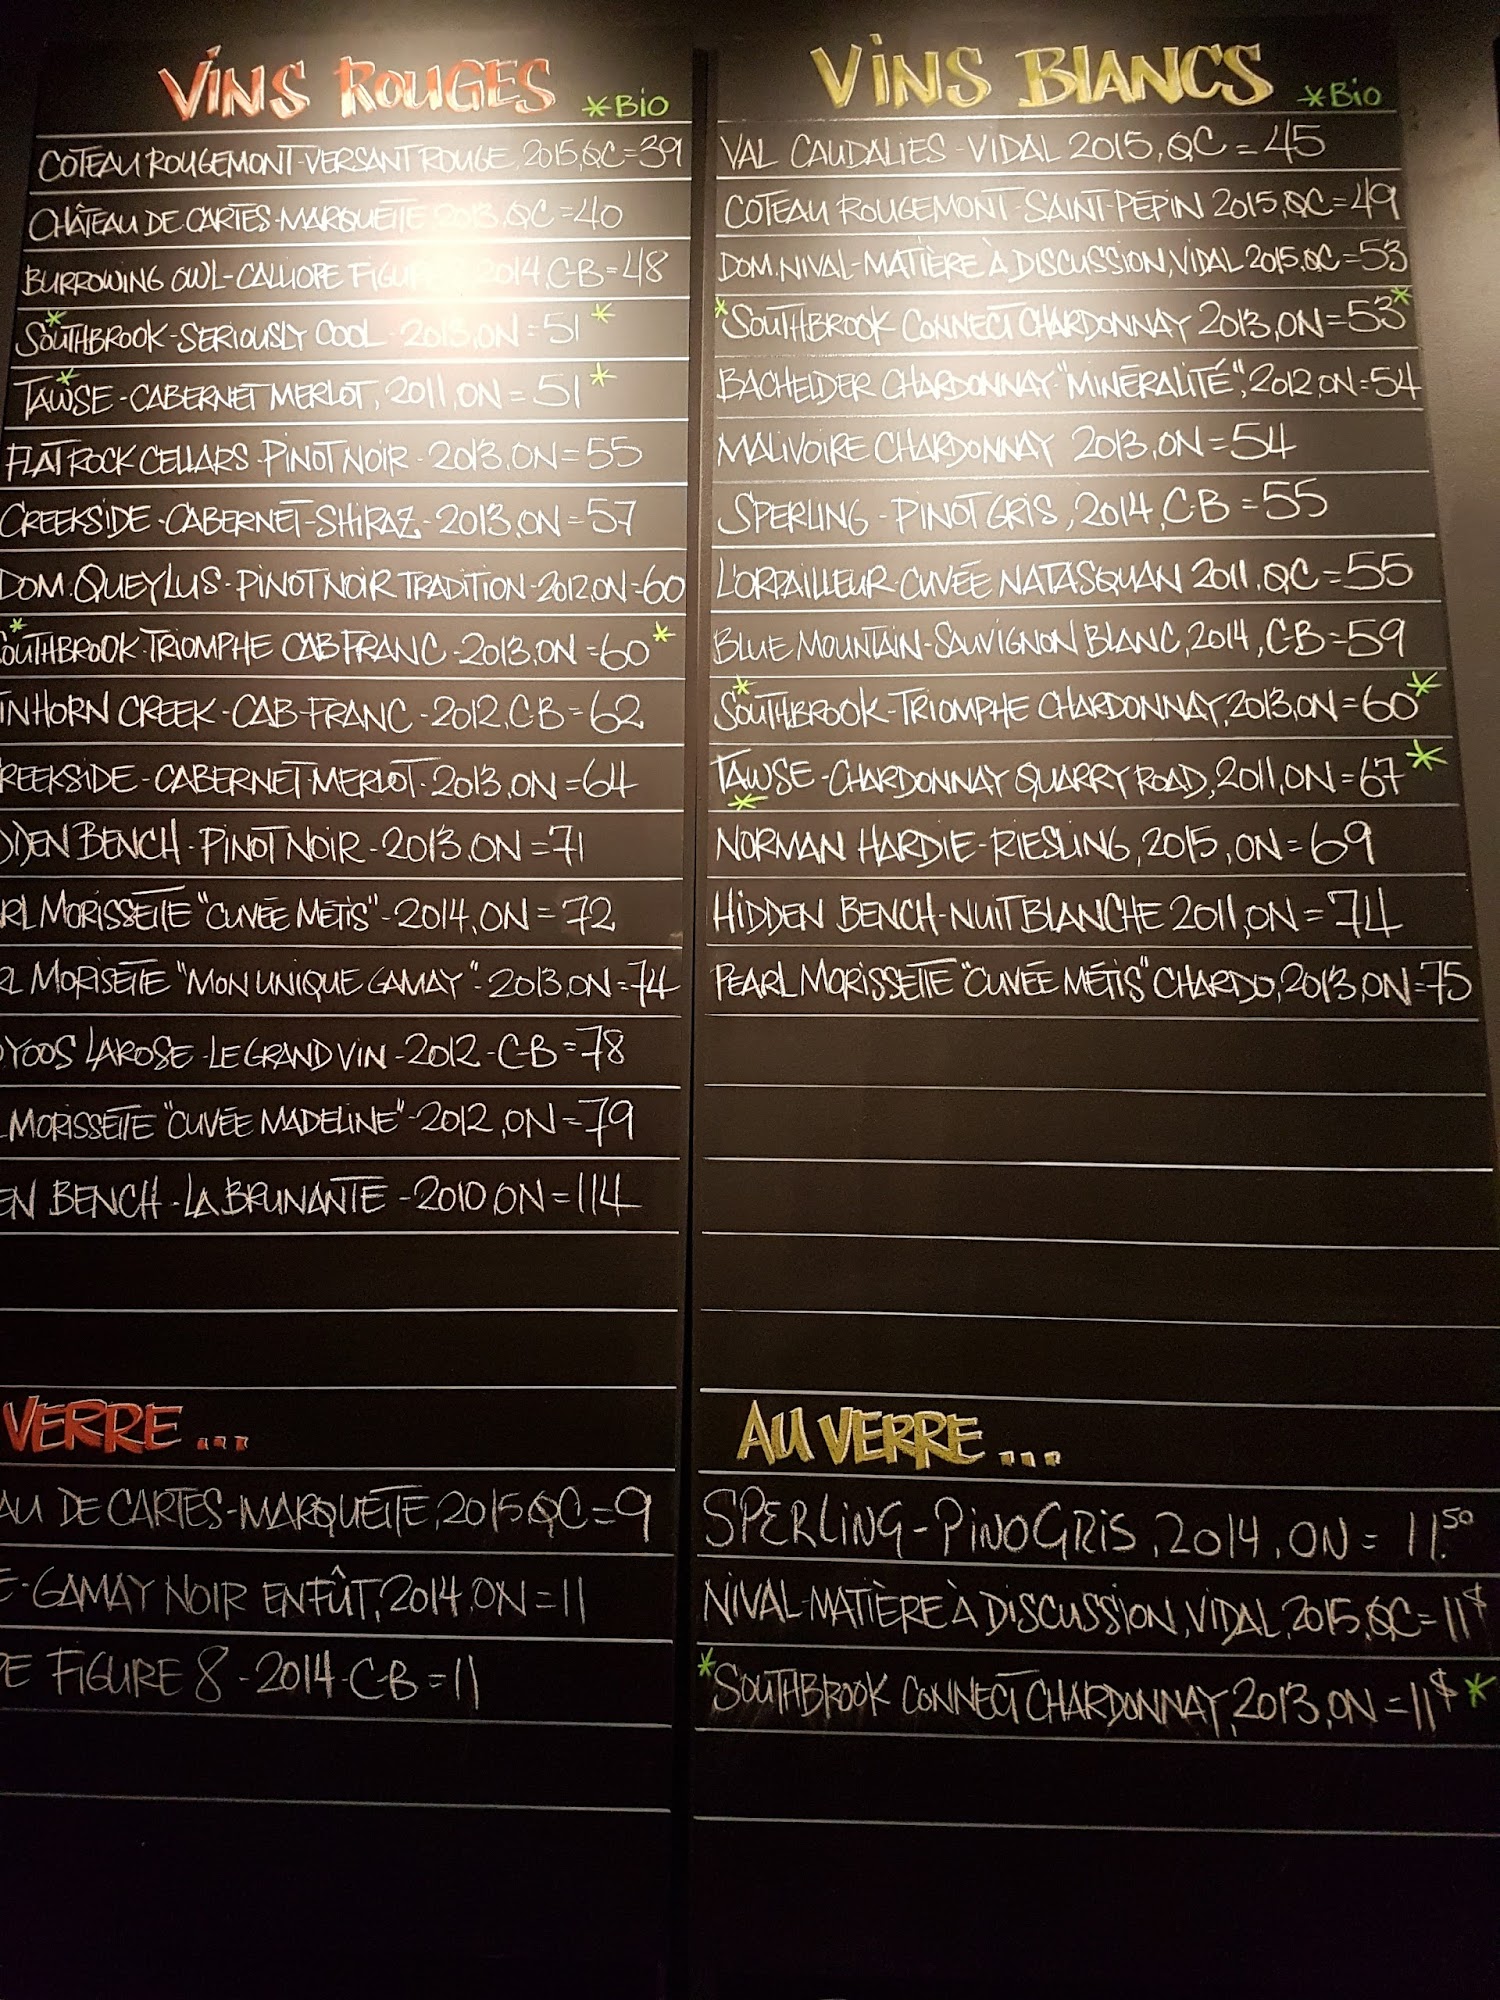 VINS ROUGES *BIO
COTEAU ROUGEMONT-VERSANT ROUGE, 2015, QC = 39
CHÂTEAU DE CARTES-MARQUETTE, 2013, QC = 40
BURROWING OWL-CALLIOPE FIGU 2014, C-B = 48
*SOUTHBROOK-SERIOUSLY COOL-2013, ON = 51 *
*TAWSE-CABERNET MERLOT, 2011, ON = 51 *
FLAT ROCK CELLARS-PINOT NOIR-2013, ON = 55
CREEKSIDE-CABERNET-SHIRAZ-2013, ON = 57
DOM. QUEYLUS-PINOT NOIR TRADITION-2012, ON = 60
*SOUTHBROOK-TRIOMPHE CAB FRANC-2013, ON = 60 *
INHORN CREEK-CAB-FRANC-2012, C-B = 62
REEKSIDE-CABERNET MERLOT-2013, ON = 64
DDEN BENCH-PINOT NOIR-2013, ON = 71
RL MORISSETTE "CUVÉE MÉTIS"-2014, ON = 72
RL MORISETTE "MON UNIQUE GAMAY"-2013, ON = 74
OYOOS LAROSE-LE GRAND VIN-2012-C-B = 78
MORISSETTE "CUVÉE MADELINE"-2012, ON = 79
EN BENCH-LA BRUNANTE-2010, ON = 114
VERRE...
AU DE CARTES-MARQUETTE, 2015, QC = 9
E-GAMAY NOIR EN FÛT, 2014, ON = 11
PE FIGURE 8-2014-C-B = 11
VINS BLANCS *BIO
VAL CAUDALIES-VIDAL 2015, QC = 45
COTEAU ROUGEMONT-SAINT-PÉPIN 2015, QC = 49
DOM. NIVAL-MATIÈRE À DISCUSSION, VIDAL 2015, QC = 53
*SOUTHBROOK CONNECT CHARDONNAY 2013, ON = 53*
BACHELDER CHARDONNAY-"MINÉRALITÉ", 2012, ON = 54
MALIVOIRE CHARDONNAY 2013, ON = 54
SPERLING-PINOT GRIS, 2014, C-B = 55
L'ORPAILLEUR-CUVÉE NATASQUAN 2011, QC = 55
BLUE MOUNTAIN-SAUVIGNON BLANC, 2014, C-B = 59
*SOUTHBROOK-TRIOMPHE CHARDONNAY, 2013, ON = 60*
*TAWSE-CHARDONNAY QUARRY ROAD, 2011, ON = 67*
NORMAN HARDIE-RIESLING, 2015, ON = 69
HIDDEN BENCH-NUIT BLANCHE 2011, ON = 74
PEARL MORISSETTE "CUVÉE MÉTIS" CHARDO, 2013, ON = 75
AU VERRE...
SPERLING-PINO GRIS, 2014, ON = 11.50
NIVAL-MATIÈRE À DISCUSSION, VIDAL, 2015, QC = 11$
*SOUTHBROOK CONNECT CHARDONNAY, 2013, ON = 11$ *